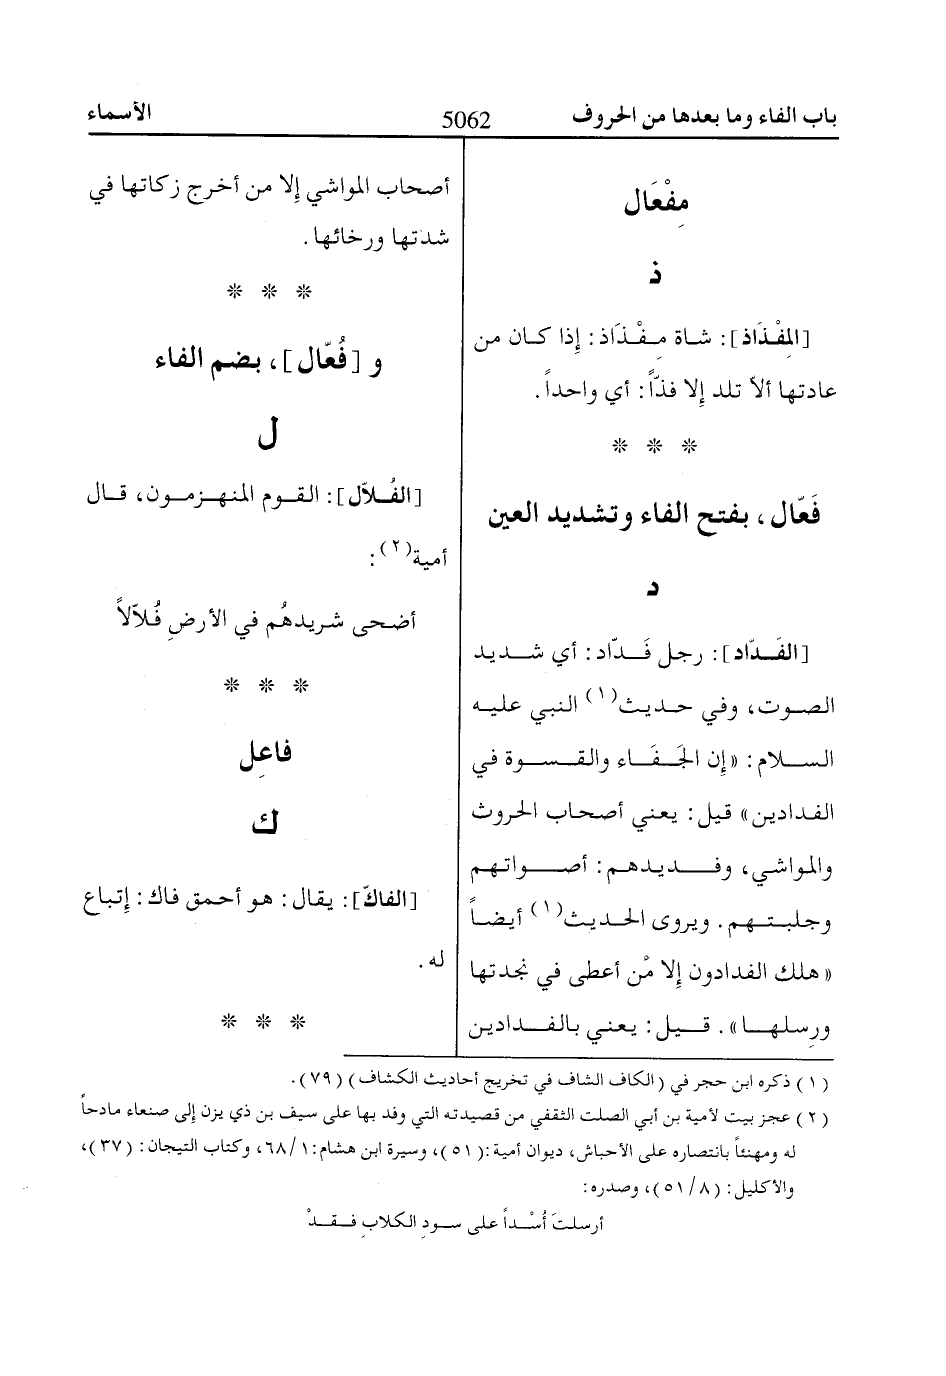 باب الفاء وما بعدها من الحروف
5062
الأسماء
مِفْعَال
ذ
[المِفْذَاذ]: شاة مِفْذَاذ: إِذا كان من
عادتها ألاّ تلد إِلا فذّاً: أي واحداً.
* * *
فَعّال، بفتح الفاء وتشديد العين
د
[الفَدّاد]: رجل فَدّاد: أي شديد
الصوت، وفي حديث(١) النبي عليه
السلام: «إِن الجَفَاء والقسوة في
الفدادين» قيل: يعني أصحاب الحروث
والمواشي، وفديدهم: أصواتهم
وجلبتهم. ويروى الحديث(١) أيضاً
«هلك الفدادون إِلا مْن أعطى في نجدتها
ورِسلها». قيل: يعني بالفدادين
أصحاب المواشي إِلا من أخرج زكاتها في
شدتها ورخائها.
* * *
و [فُعّال]، بضم الفاء
ل
[الفُلاّل]: القوم المنهزمون، قال
أمية(٢):
أضحى شريدهُم في الأرضِ فُلاّلاً
* * *
فاعِل
ك
[الفاكّ]: يقال: هو أحمق فاك: إِتباع
له.
* * *
(١) ذكره ابن حجر في (الكاف الشاف في تخريج أحاديث الكشاف) (٧٩).
(٢) عجز بيت لأمية بن أبي الصلت الثقفي من قصيدته التي وفد بها على سيف بن ذي يزن إِلى صنعاء مادحاً
له ومهنئاً بانتصاره على الأحباش، ديوان أمية:(٥١)، وسيرة ابن هشام:٦٨/١، وكتاب التيجان: (٣٧)،
والأكليل: (٥١/٨)، وصدره:
أرسلتَ أُسْداً على سودِ الكلابِ فقدْ